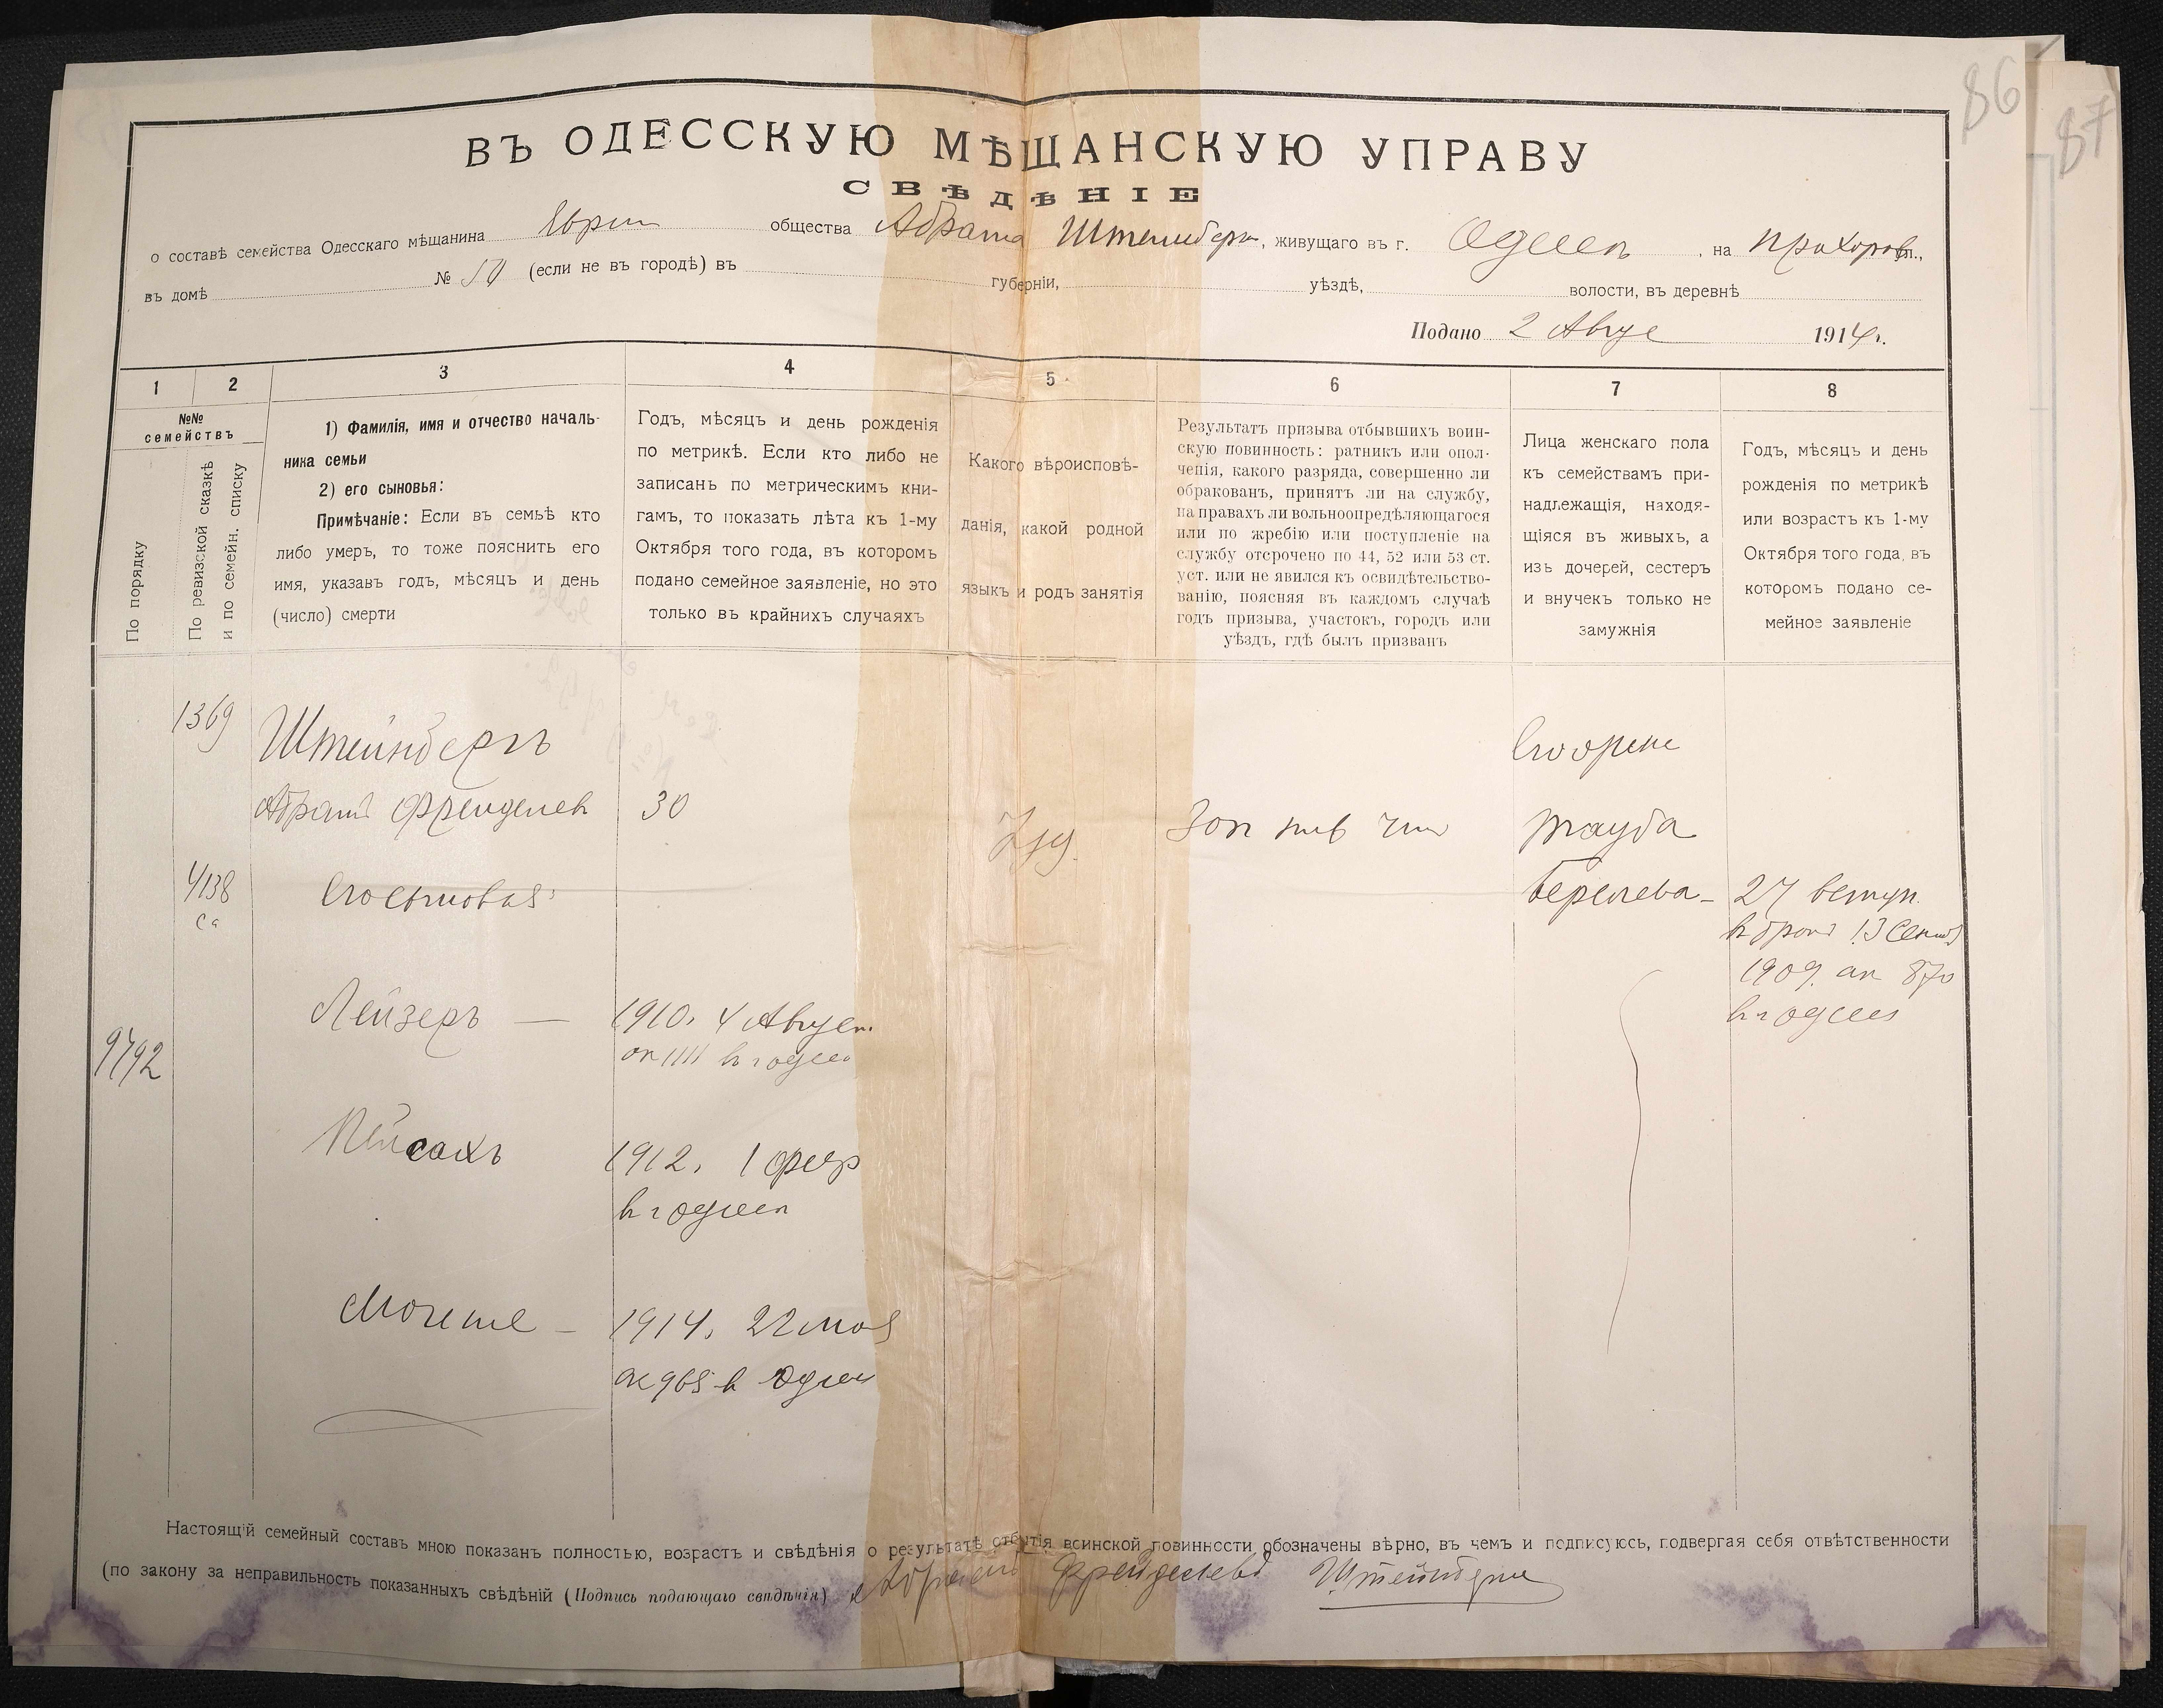 86
87
ВЪ ОДЕССКУЮ МѢЩАНСКУЮ УПРАВУ
СВѢДѢНІЕ
о составѣ семейства Одесскаго мѣщанина общества Абрама Штейнберг, живущаго въ г. Одессѣ, на Прохоров ул.,
въ домѣ № 50 (если не въ городѣ) въ губерніи, уѣздѣ, волости, въ деревнѣ
Подано 2 Авгус 1914 г.
1 2 3 4 5 6 7 8
№№
семействъ
По порядку
По ревизской сказкѣ
и по семейн. списку
1) Фамилія, имя и отчество началь-
ника семьи
2) его сыновья:
Примѣчаніе: Если въ семьѣ кто
либо умеръ, то тоже пояснить его
имя, указавъ годъ, мѣсяцъ и день
(число) смерти
Годъ, мѣсяцъ и день рожденія
по метрикѣ. Если кто либо не
записанъ по метрическимъ кни-
гамъ, то показать лѣта къ 1-му
Октября того года, въ которомъ
подано семейное заявленіе, но это
только въ крайнихъ случаяхъ
Какого вѣроисповѣ-
данія, какой родной
языкъ и родъ занятія
Результатъ призыва отбывшихъ воин-
скую повинность: ратникъ или опол-
ченія, какого разряда, совершенно ли
обракованъ, принятъ ли на службу,
на правахъ ли вольноопредѣляющагося
или по жребію или поступленіе на
службу отсрочено по 44, 52 или 53 ст.
уст. или не явился къ освидѣтельство-
ванію, поясняя въ каждомъ случаѣ
годъ призыва, участокъ, городъ или
уѣздъ, гдѣ былъ призванъ
Лица женскаго пола
къ семействамъ при-
надлежащія, находя-
щіяся въ живыхъ, а
изъ дочерей, сестеръ
и внучекъ только не
замужнія
Годъ, мѣсяцъ и день
рожденія по метрикѣ
или возрастъ къ 1-му
Октября того года, въ
которомъ подано се-
мейное заявленіе
1369 Штейнбергъ
Абрамъ Фрейделев 30 Іуд. Тауба
4138 Его сыновья: Берелева - 27 вступ.
в бракъ 13 Сент
1909. ак 870
в г Одессѣ
Лейзеръ — 1910. 4 Август
ак 1111 в г Одессѣ
9792
Пейсахъ 1912. 1 февр
в г Одессѣ
Мошше - 1914. 22 мая
ак 968 в Одессѣ
Настоящій семейный составъ мною показанъ полностью, возрастъ и свѣдѣнія о результатѣ отбытія воинской повинности обозначены вѣрно, въ чемъ и подписуюсь, подвергая себя отвѣтственности
(по закону за неправильность показанныхъ свѣдѣній (Подпись подающаго свѣдѣнія) Абрамъ Фрейделевъ Штейнберг